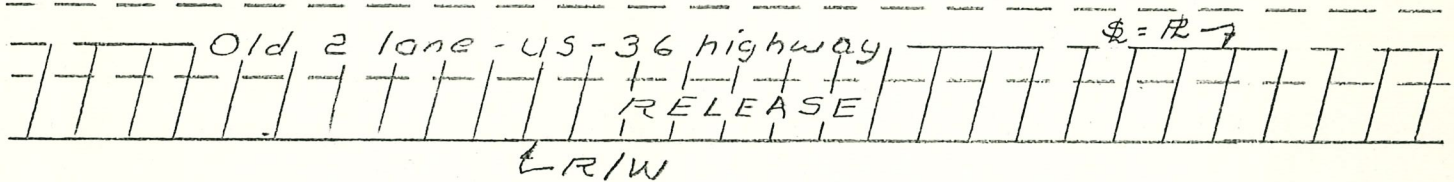 Old 2 lane-US-36 highway
RELEASE
R/W